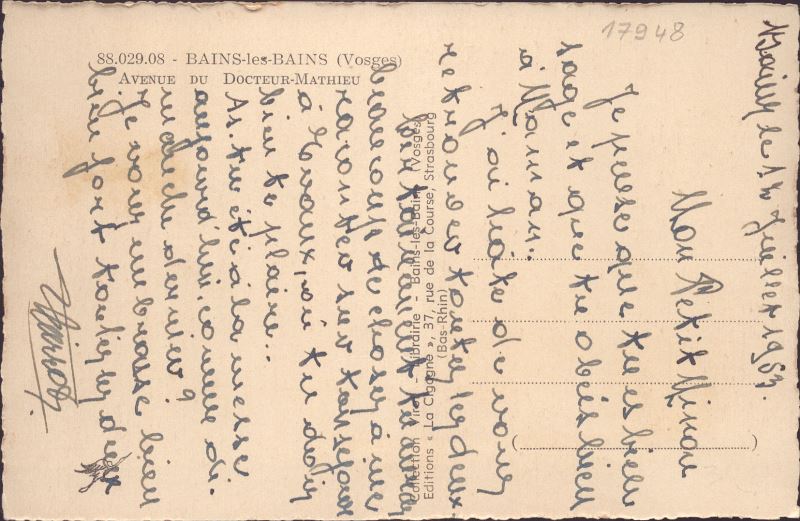 17948
88.029.08 - BAINS-les-BAINS (Vosges)
AVENUE DU DOCTEUR-MATHIEU
Collection Virot - Librairie - Bains-les-Bains (Vosges)
Editions « La Cigogne », 37, rue de la Course, Strasbourg
(Bas-Rhin)
Bains le 14 Juillet 1963.
Mon Petit Minou
Je pense que tu es bien
sage et que tu obéis bien
à Maman.
J'ai hâte de vous
retrouver toutes les deux
beaucoup de choses à me
raconter sur ton séjour
à Evaux, où tu dois
bien te plaire..
As-tu été à la messe
aujourd'hui comme di-
manche dernier?
Je vous embrasse bien
bien fort toutes les deux